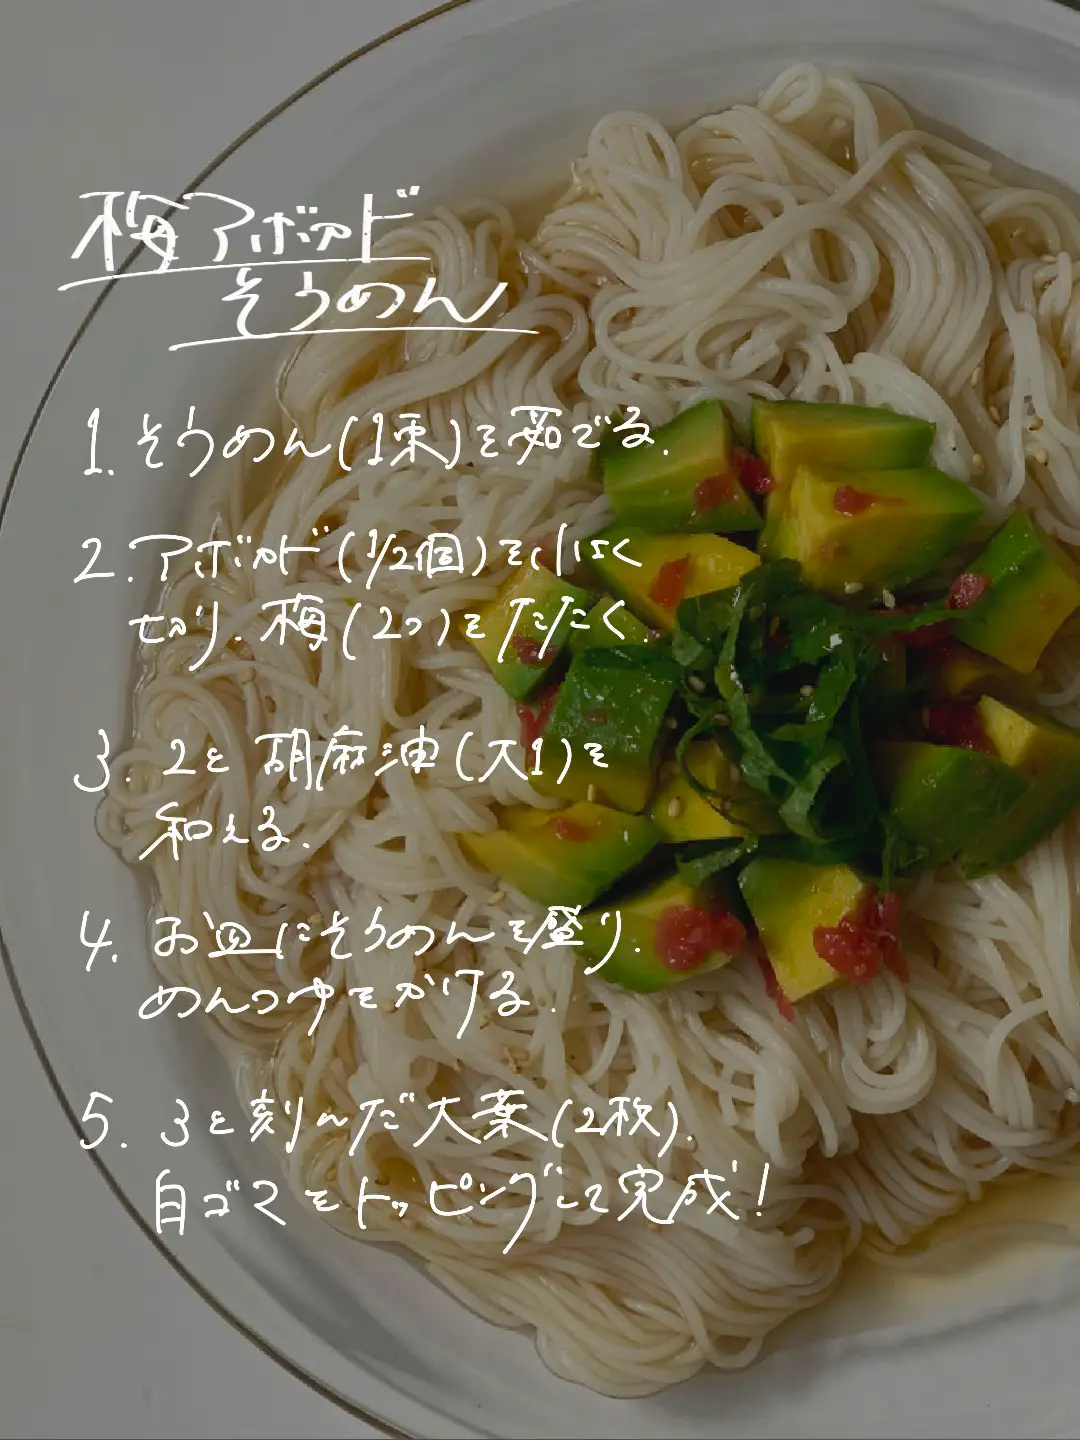 梅アボカド
そうめん
1. そうめん(1束)を茹でる.
2. アボカド(1/2個)を小さく
切り. 梅(2つ)をたたく
3. 2と胡麻油(大1)を
和える.
4. お皿にそうめんを盛り.
めんつゆをかける.
5. 3と刻んだ大葉(2枚).
白ゴマをトッピングして完成!